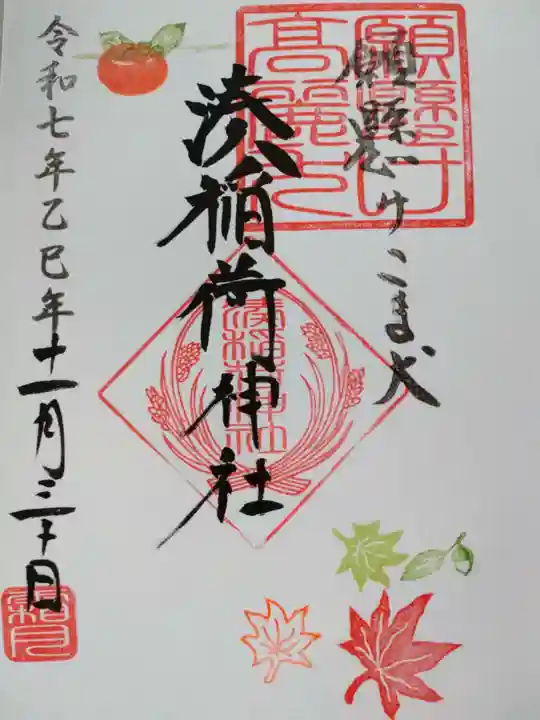 願懸けこま犬
願懸け高麗犬
湊稲荷神社
湊稲荷神社
令和七年乙巳年十一月三十日
霜月